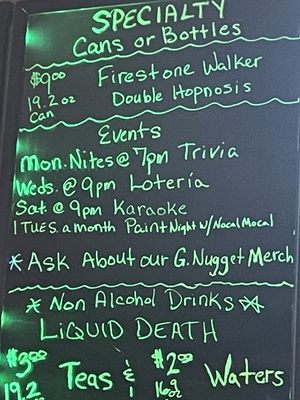 SPECIALTY
Cans or Bottles
$9.00 Firestone Walker
19.2 oz Double Hopnosis
can
Events
Mon. Nites @ 7pm Trivia
Weds. @ 9pm Lotería
Sat @ 9pm Karaoke
1 TUES. a month Paint Night w/ Nocal Mocal
* ASK About our G. Nugget Merch
* Non Alcohol Drinks *
LIQUID DEATH
$3.00 Teas & $2.00 Waters
19.2 16oz